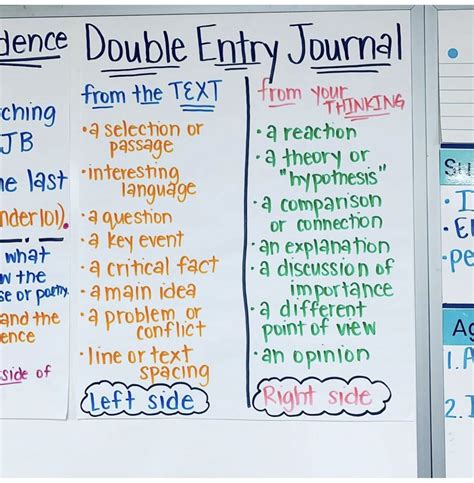 dence
ching
JB
ne last
nder101).
what
w the
se or poetry.
and the
ence
side of
Double Entry Journal
from the TEXT
• a selection or
passage
• interesting
language
• a question
• a key event
• a critical fact
• a main idea
• a problem or
conflict
• line or text
spacing
Left side
from your
THINKING
• a reaction
• a theory or
"hypothesis"
• a comparison
or connection
• an explanation
• a discussion of
importance
• a different
point of view
• an opinion
Right side
Su
• I
• El
• pe
Ag
1. A
2. I